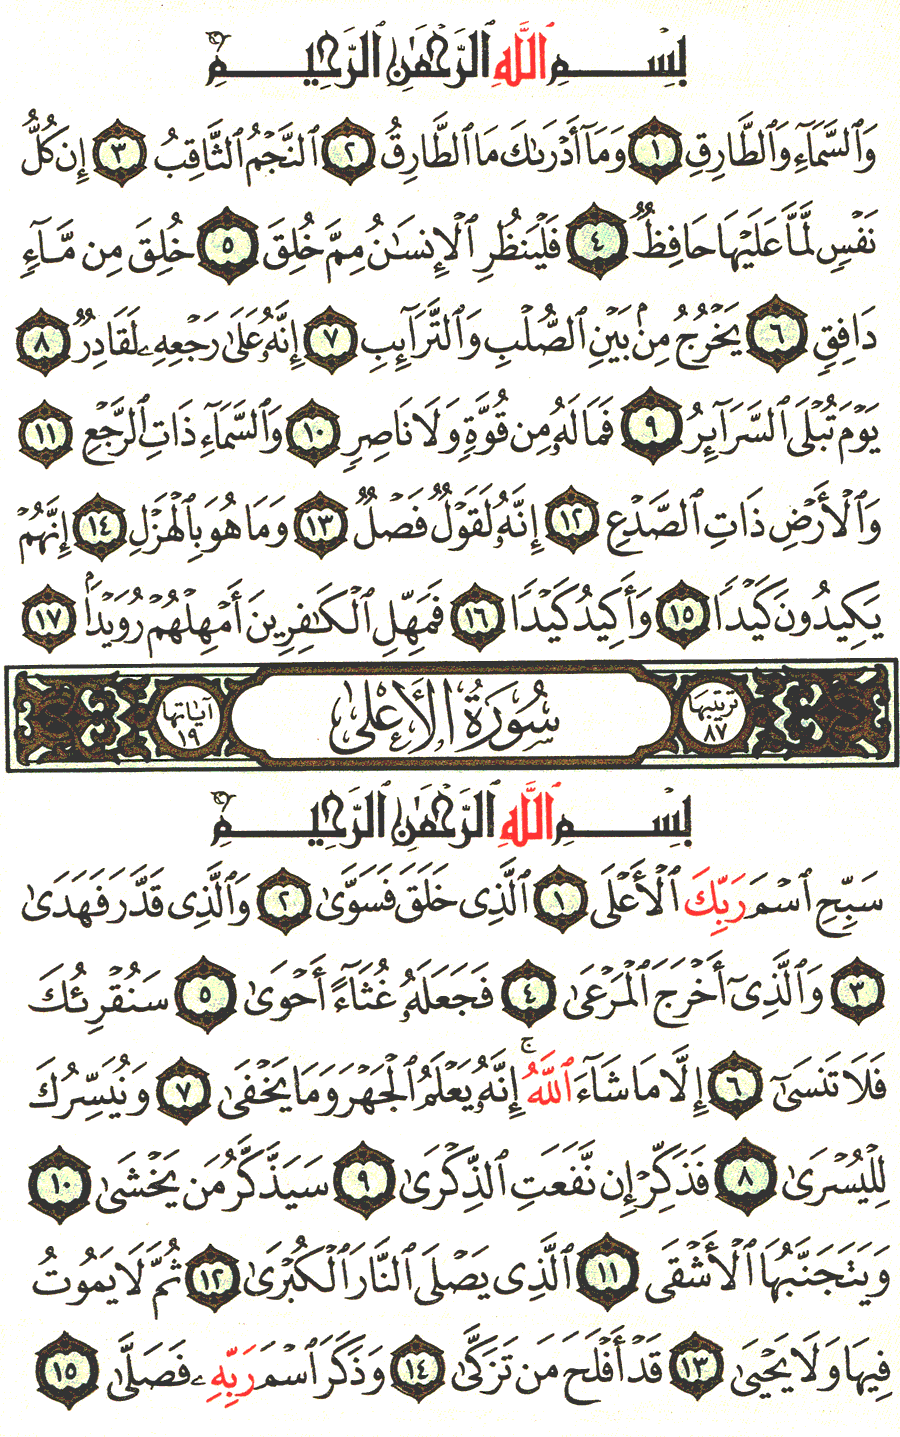 بِسْمِ ٱللَّهِ ٱلرَّحْمَٰنِ ٱلرَّحِيمِ
وَٱلسَّمَآءِ وَٱلطَّارِقِ ١ وَمَآ أَدْرَىٰكَ مَا ٱلطَّارِقُ ٢ ٱلنَّجْمُ ٱلثَّاقِبُ ٣ إِن كُلُّ
نَفْسٍ لَّمَّا عَلَيْهَا حَافِظٌ ٤ فَلْيَنظُرِ ٱلْإِنسَٰنُ مِمَّ خُلِقَ ٥ خُلِقَ مِن مَّآءٍ
دَافِقٍ ٦ يَخْرُجُ مِنۢ بَيْنِ ٱلصُّلْبِ وَٱلتَّرَآئِبِ ٧ إِنَّهُۥ عَلَىٰ رَجْعِهِۦ لَقَادِرٌ ٨
يَوْمَ تُبْلَى ٱلسَّرَآئِرُ ٩ فَمَا لَهُۥ مِن قُوَّةٍ وَلَا نَاصِرٍ ١٠ وَٱلسَّمَآءِ ذَاتِ ٱلرَّجْعِ ١١
وَٱلْأَرْضِ ذَاتِ ٱلصَّدْعِ ١٢ إِنَّهُۥ لَقَوْلٌ فَصْلٌ ١٣ وَمَا هُوَ بِٱلْهَزْلِ ١٤ إِنَّهُمْ
يَكِيدُونَ كَيْدًا ١٥ وَأَكِيدُ كَيْدًا ١٦ فَمَهِّلِ ٱلْكَٰفِرِينَ أَمْهِلْهُمْ رُوَيْدَۢا ١٧
ترتيبها ٨٧ سُورَةُ الأَعْلَىٰ آياتها ١٩
بِسْمِ ٱللَّهِ ٱلرَّحْمَٰنِ ٱلرَّحِيمِ
سَبِّحِ ٱسْمَ رَبِّكَ ٱلْأَعْلَى ١ ٱلَّذِى خَلَقَ فَسَوَّىٰ ٢ وَٱلَّذِى قَدَّرَ فَهَدَىٰ
٣ وَٱلَّذِىٓ أَخْرَجَ ٱلْمَرْعَىٰ ٤ فَجَعَلَهُۥ غُثَآءً أَحْوَىٰ ٥ سَنُقْرِئُكَ
فَلَا تَنسَىٰٓ ٦ إِلَّا مَا شَآءَ ٱللَّهُ ۚ إِنَّهُۥ يَعْلَمُ ٱلْجَهْرَ وَمَا يَخْفَىٰ ٧ وَنُيَسِّرُكَ
لِلْيُسْرَىٰ ٨ فَذَكِّرْ إِن نَّفَعَتِ ٱلذِّكْرَىٰ ٩ سَيَذَّكَّرُ مَن يَخْشَىٰ ١٠
وَيَتَجَنَّبُهَا ٱلْأَشْقَى ١١ ٱلَّذِى يَصْلَى ٱلنَّارَ ٱلْكُبْرَىٰ ١٢ ثُمَّ لَا يَمُوتُ
فِيهَا وَلَا يَحْيَىٰ ١٣ قَدْ أَفْلَحَ مَن تَزَكَّىٰ ١٤ وَذَكَرَ ٱسْمَ رَبِّهِۦ فَصَلَّىٰ ١٥